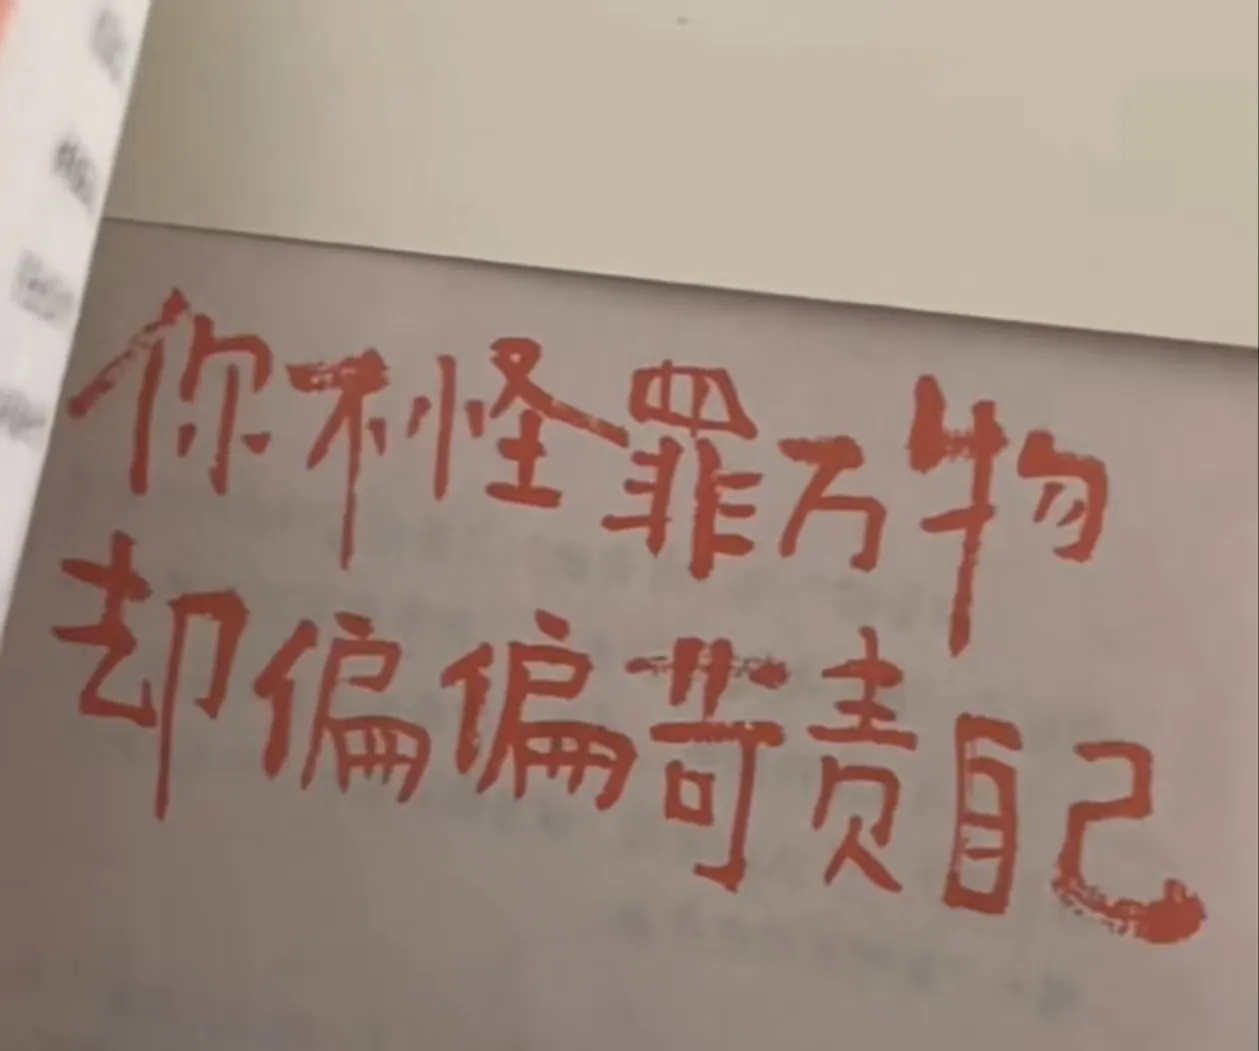 你不怪罪万物
却偏偏苛责自己